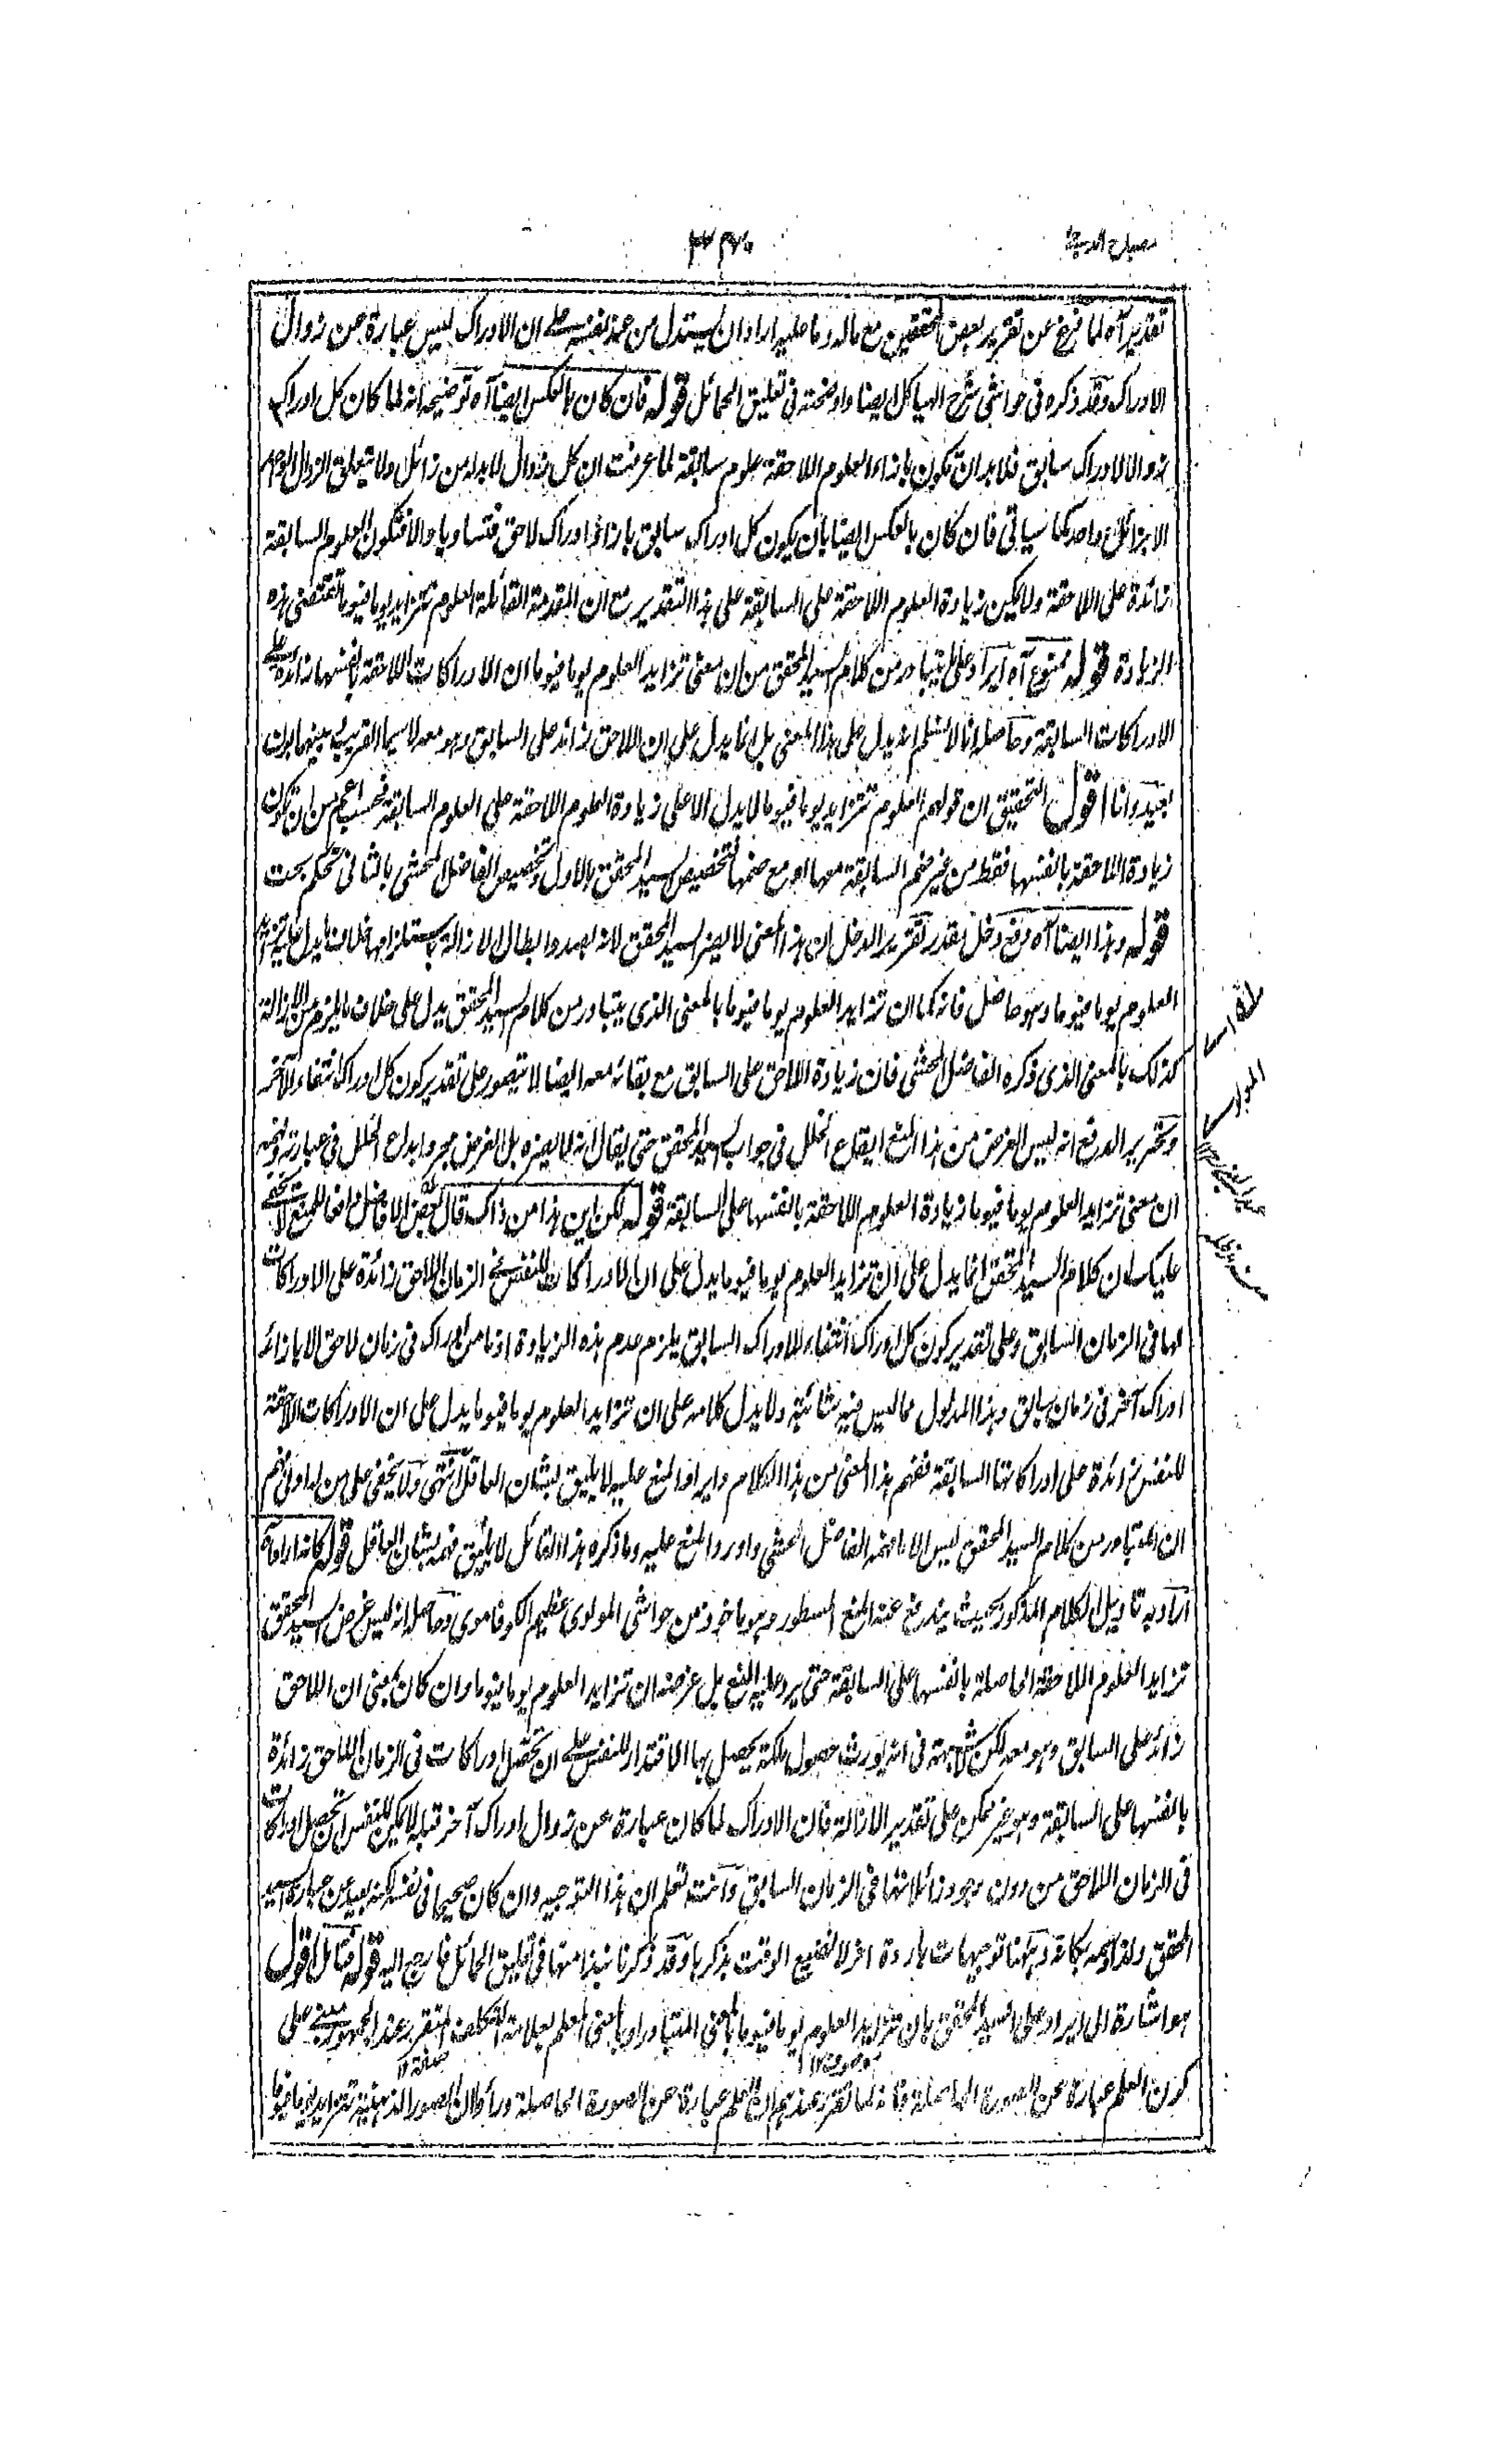 مصباح الدجى
تقديره آه لما فرغ عن تقرير بعض المحققين مع ماله وما عليه اراد ان يستدل من عند نفسه على ان الادراك ليس عبارة عن زوال
الادراك وقد ذكره فى حواشى شرح الهياكل ايضا واوضحته فى تعليق الحمائل قوله فان كان بالعكس ايضا آه توضيحه انه لما كان كل ادراك
زوالا لادراك سابق فلابد ان تكون بازاء العلوم اللاحقة علوم سابقة لما عرفت ان كل زوال لابد له من زائل ولا يتعلق الزوال الواحد
الا بزائل واحد كما سياتى فان كان بالعكس ايضا بان يكون كل ادراك سابق بازاء ادراك لاحق فتساويا والا فتكون العلوم السابقة
زائدة على اللاحقة ولا يمكن زيادة العلوم اللاحقة على السابقة على هذا التقدير مع ان المقدمة القائلة العلوم تتزايد يوما فيوما تقتضى هذه
الزيادة قوله ممنوع آه ايراد على ما يتبادر من كلام السيد المحقق من ان معنى تزايد العلوم يوما فيوما ان الادراكات اللاحقة بانفسها زائدة على
الادراكات السابقة وحاصله انا لا نسلم انه يدل على هذا المعنى بل انما يدل على ان اللاحق زائد على السابق وهو معه لا سيما القريب بينهما بون
بعيد وانا اقول التحقيق ان قولهم العلوم تتزايد يوما فيوما لا يدل الا على زيادة العلوم اللاحقة على العلوم السابقة فحسب اعم من ان تكون
زيادة اللاحقة بانفسها فقط من غير ضم السابقة معها او مع ضمها فتخصيص السيد المحقق بالاول وتخصيص الفاضل المحشى بالثانى تحكم بحت
قوله وهذا ايضا آه دفع دخل مقدر تقرير الدخل ان هذا المعنى لا يضر السيد المحقق لانه بصدد ابطال الازالة باستلزامها خلاف ما يدل عليه تزايد
العلوم يوما فيوما وهو حاصل فانه كما ان تزايد العلوم يوما فيوما بالمعنى الذى يتبادر من كلام السيد المحقق يدل على خلاف ما يلزم من الازالة
كذلك بالمعنى الذى ذكره الفاضل المحشى فان زيادة اللاحق على السابق مع بقائه معه ايضا لا تتصور على تقدير كون كل ادراك انتفاء لآخر
وتحرير الدفع انه ليس الغرض من هذا المنع ايقاع الخلل فى جواب السيد المحقق حتى يقال انه لا يضره بل الغرض مجرد ابداع الخلل فى عبارته
ان معنى تزايد العلوم يوما فيوما زيادة العلوم اللاحقة بانفسها على السابقة قوله لكن اين هذا من ذاك قال بعض الافاضل دافعا للمنع لا يخفى
عليك ان كلام السيد المحقق انما يدل على ان تزايد العلوم يوما فيوما يدل على ان الادراكات للنفس فى الزمان اللاحق زائدة على الادراكات
لها فى الزمان السابق وعلى تقدير كون كل ادراك انتفاء للادراك السابق يلزم عدم هذه الزيادة اذ ما من ادراك فى زمان لاحق الا بازائه
ادراك آخر فى زمان سابق وهذا المدلول مما ليس فيه شائبة ولا يدل كلامه على ان تزايد العلوم يوما فيوما يدل على ان الادراكات اللاحقة
للنفس زائدة على ادراكاتها السابقة ففهم هذا المعنى من هذا الكلام وايراد المنع عليه لا يليق بشان العاقل انتهى ولا يخفى على من له ادنى فهم
ان المتبادر من كلام السيد المحقق ليس الا ما فهمه الفاضل المحشى واورد المنع عليه وما ذكره هذا القائل لا يليق فهمه بشان العاقل قوله كانه اراد آه
اراد به تاويل الكلام المذكور بحيث يندفع عنه المنع المسطور وهو ماخوذ من حواشى المولوى عظيم الكوفاموى وحاصله انه ليس غرض السيد المحقق
تزايد العلوم اللاحقة الحاصلة بانفسها على السابقة حتى يرد عليه المنع بل غرضه ان تزايد العلوم يوما فيوما وان كان بمعنى ان اللاحق
زائد على السابق وهو معه لكن لا شبهة فى انه يورث حصول ملكة يحصل بها الاقتدار للنفس على ان تحصل ادراكات فى الزمان اللاحق زائدة
بانفسها على السابقة وهو غير ممكن على تقدير الازالة فان الادراك لما كان عبارة عن زوال ادراك آخر قبله لا يمكن للنفس ان تحصل ادراكات
فى الزمان اللاحق من دون وجود زائلاتها فى الزمان السابق وانت تعلم ان هذا التوجيه وان كان صحيحا فى نفسه لكنه بعيد عن عبارة السيد
المحقق ولذا صدره بكانه وههنا توجيهات باردة اخر لا نضيع الوقت بذكرها وقد ذكرنا نبذا منها فى تعليق الحمائل فارجع اليه قوله فتامل اقول
هو اشارة الى ايراد على السيد المحقق بان تزايد العلوم يوما فيوما بالمعنى المتبادر او بالمعنى المعلم بعلامة التكلف المتقرر عند الجمهور مبنى على
كون العلم عبارة عن الصورة الحاصلة فانه لما تقرر عندهم ان العلم عبارة عن الصورة الحاصلة وراوا ان الصور الذهنية تتزايد يوما فيوما